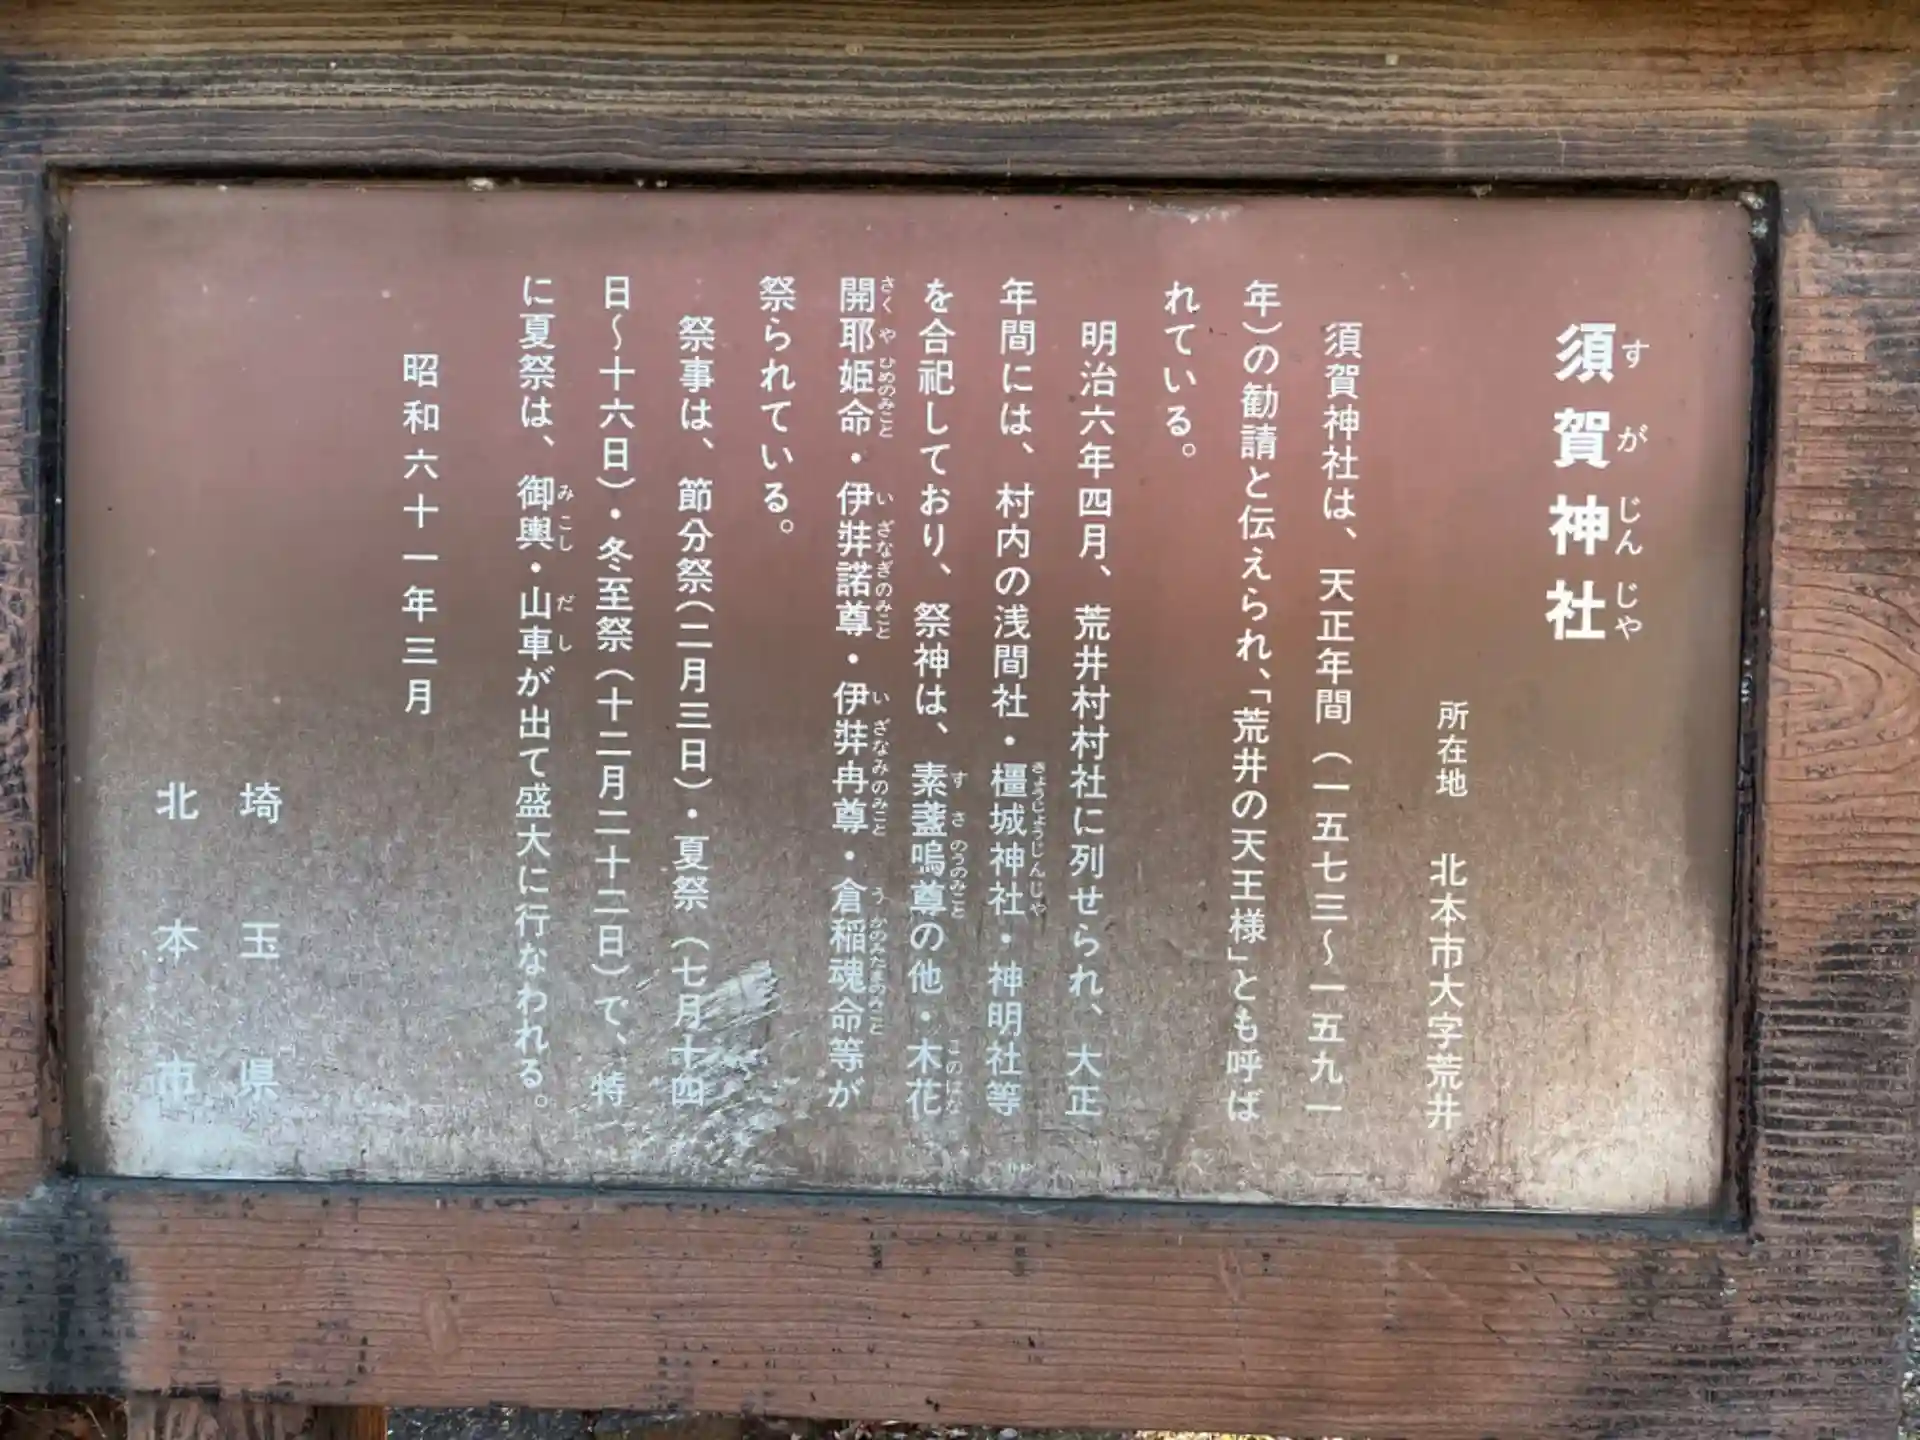 須賀神社
すがじんじゃ
所在地　北本市大字荒井
須賀神社は、天正年間（一五七三〜一五九一
年）の勧請と伝えられ、「荒井の天王様」とも呼ば
れている。
明治六年四月、荒井村村社に列せられ、大正
年間には、村内の浅間社・橿城神社・神明社等
きょうじょうじんじゃ
を合祀しており、祭神は、素盞嗚尊の他・木花
すさのうのみこと　このはな
開耶姫命・伊弉諾尊・伊弉冉尊・倉稲魂命等が
さくやひめのみこと　いざなぎのみこと　いざなみのみこと　うかのみたまのみこと
祭られている。
祭事は、節分祭（二月三日）・夏祭（七月十四
日〜十六日）・冬至祭（十二月二十二日）で、特
に夏祭は、御輿・山車が出て盛大に行なわれる。
みこし　だし
昭和六十一年三月
埼玉県
北本市